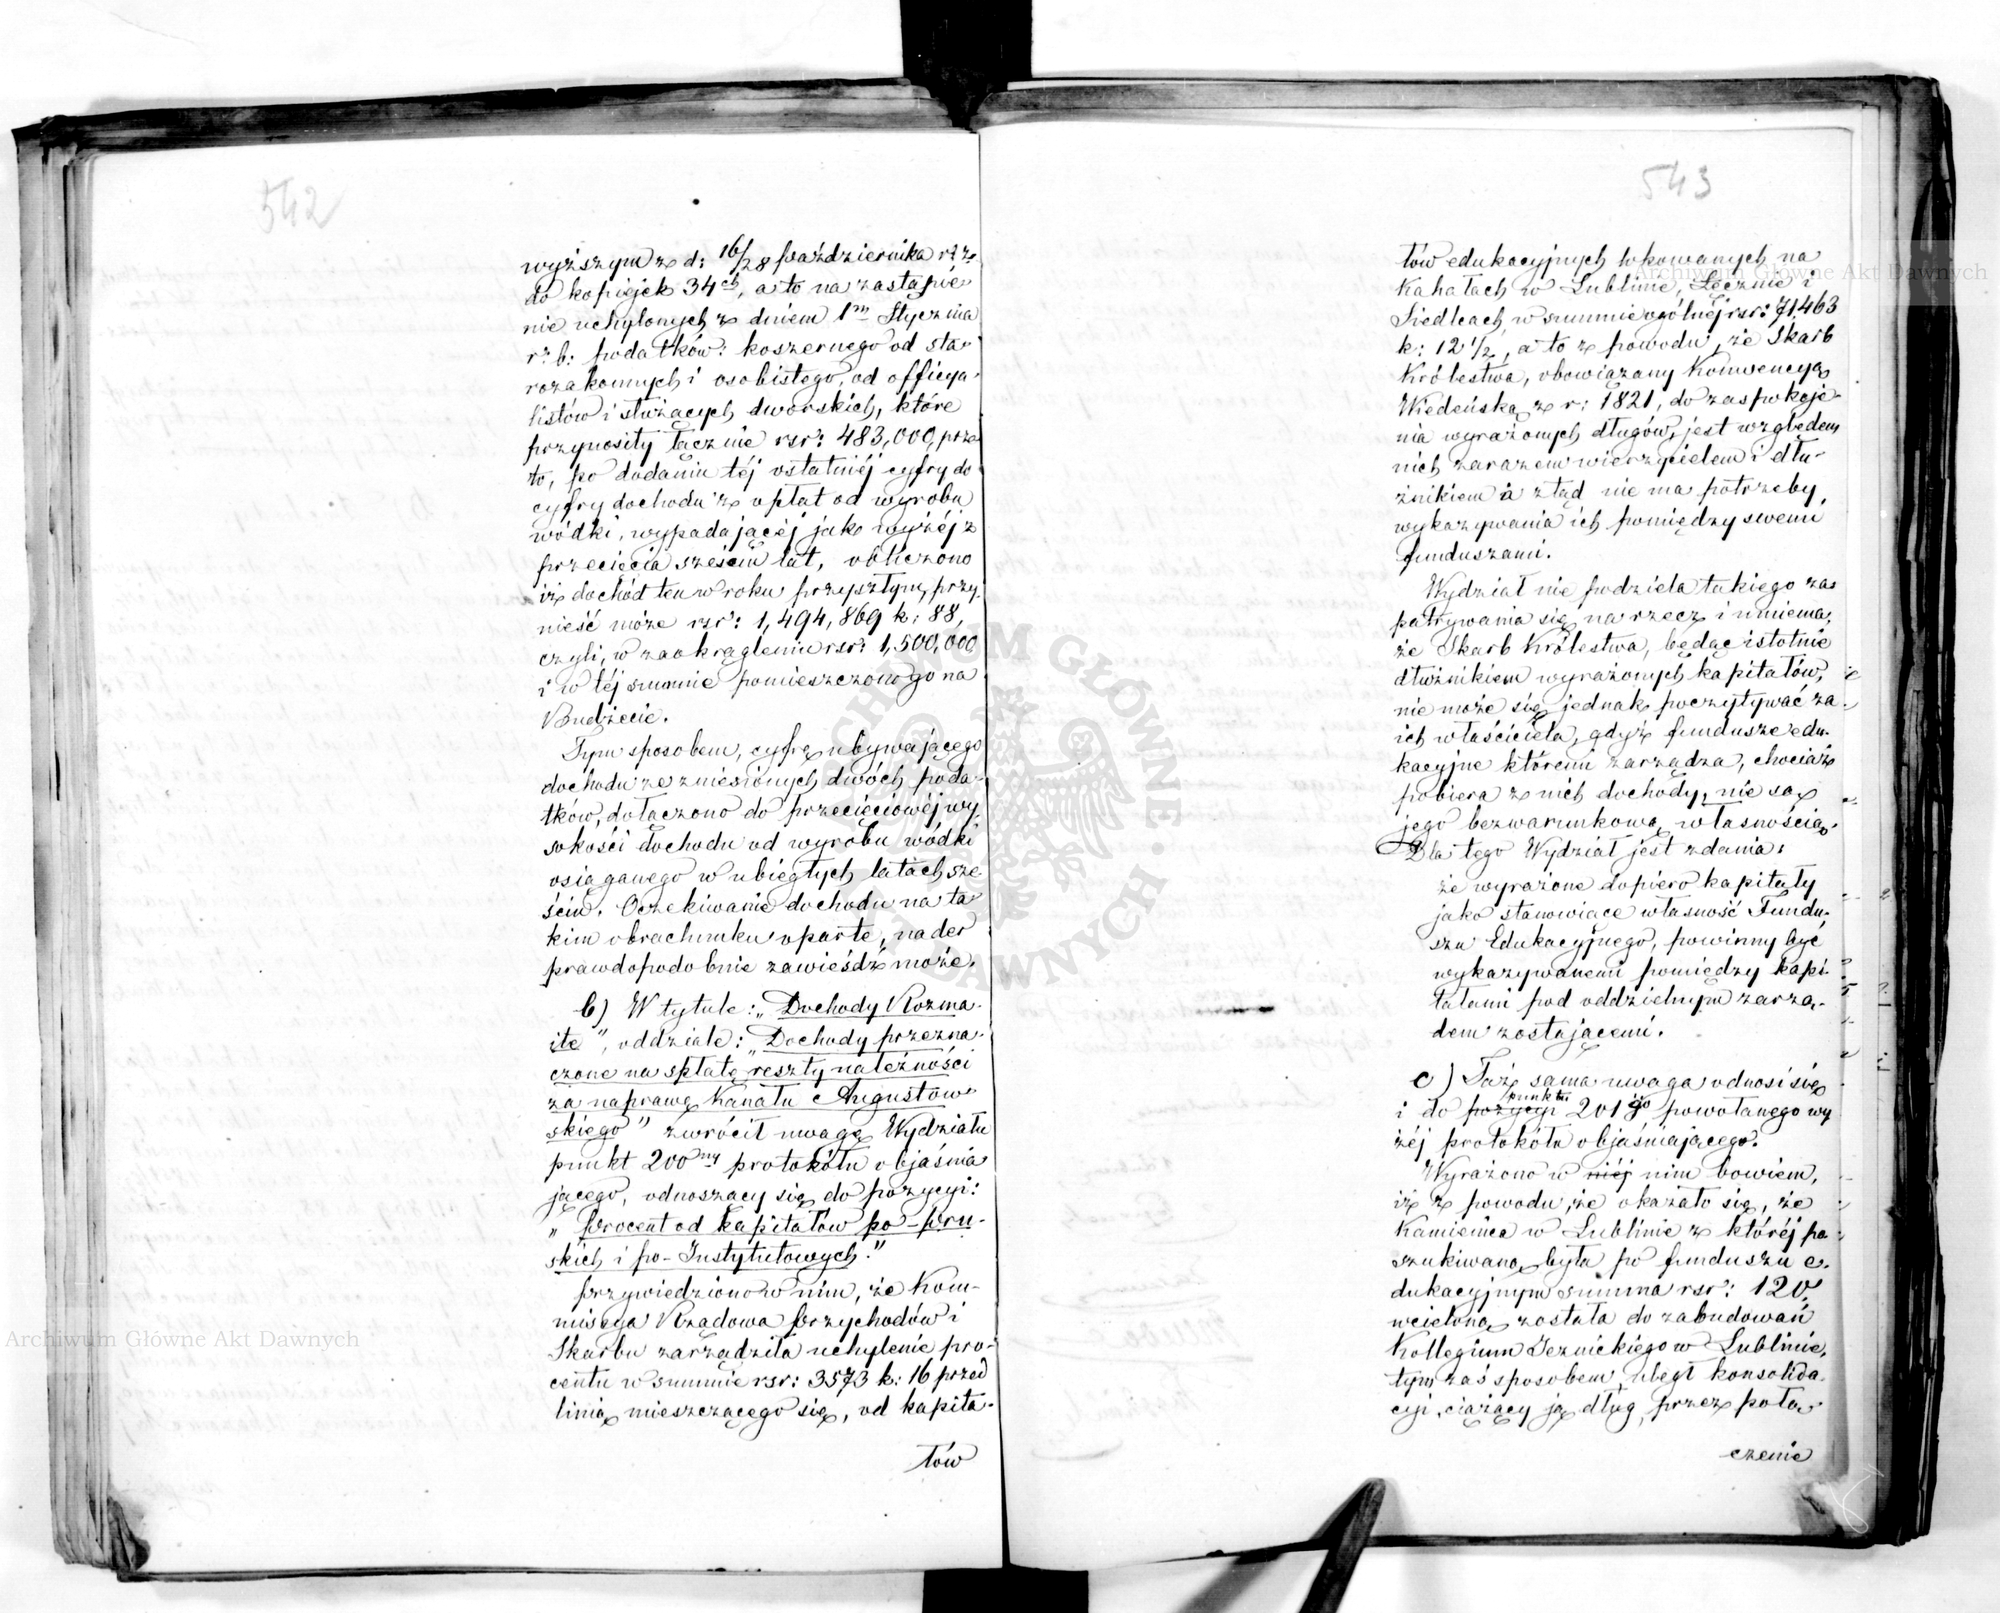 542
wyższym z d: 16/28 Października r: z:
do kopiejek 34ch, a to na zastąpie-
nie uchylonych z dniem 1m Stycznia
r: b: podatków: koszernego od sta-
rozakonnych i osobistego, od officya-
listów i służących dworskich, które
przynosiły łącznie rsr: 483,000, prze-
to, po dodaniu téj ostatniéj cyfry do
cyfry dochodu z opłat od wyrobu
wódki, wypadającéj jako wyżéj z
przecięcia sześciu lat, obliczono
iż dochód ten w roku przyszłym, przy-
nieść może rsr: 1,494,869 k: 88,
czyli, w zaokrągleniu rsr: 1,500,000
i w téj summie pomieszczono go na
Budżecie.
Tym sposobem, cyfrę ubywającego
dochodu ze zniesionych dwóch poda-
tków, dołączono do przecięciowéj wy-
sokości dochodu od wyrobu wódki
osiąganego w ubiegłych latach sze-
ściu. Oczekiwanie dochodu na ta-
kim obrachunku oparte, nader
prawdopodobnie zawieśdź może.
b) W tytule: „Dochody Rozma-
ite”, oddziale: „Dochody przezna-
czone na spłatę reszty należności
za naprawę Kanału Augustow-
skiego” zwrócił uwagę Wydziału
punkt 200ny protokółu objaśnia-
jącego, odnoszący się do pozycyi:
„Procent od kapitałów po-Pru-
skich i po-Instytutowych.”
Przywiedziono w nim, że Kom-
missya Rządowa Przychodów i
Skarbu zarządziła uchylenie pro-
centu w summie rsr: 3573 k: 16 przed
linią mieszczącego się, od kapita-
tów
543
tów edukacyjnych lokowanych na
Kahałach w Lublinie, Łęcznie i
Siedlcach, w summie ogólnéj rsr: 71463
k: 12 1/2, a to z powodu, że Skarb
Królestwa, obowiązany Konwencyą
Wiedeńską z r: 1821, do zaspokoje-
nia wyrażonych długów, jest względem
nich zarazem wierzycielem i dłu-
żnikiem a ztąd nie ma potrzeby,
wykazywania ich pomiędzy swemi
funduszami.
Wydział nie podziela takiego za-
patrywania się na rzecz i mniema,
że Skarb Królestwa, będąc istotnie
dłużnikiem wyrażonych kapitałów,
nie może się jednak poczytywać za
ich właściciela, gdyż fundusze edu-
kacyjne któremi zarządza, chociaż
pobiera z nich dochody, nie są
jego bezwarunkową własnością.
Dla tego Wydział jest zdania:
że wyrażone dopiero kapitały
jako stanowiące własność Fundu-
szu Edukacyjnego, powinny być
wykazywanemi pomiędzy kapi-
tałami pod oddzielnym zarzą-
dem zostającemi.
c) Taż sama uwaga odnosi się
punktu
i do pozycyi 201go powołanego wy-
żéj protokółu objaśniającego.
Wyrażono w niéj nim bowiem,
iż z powodu, że okazało się, że
Kamienica w Lublinie z któréj po-
szukiwaną była po funduszu e-
dukacyjnym summa rsr: 120,
wcieloną została do zabudowań
Kollegium Jezuickiego w Lublinie,
tym zaś sposobem, uległ konsolida-
cyi, ciążący ją dług, przez połą-
czenie
Archiwum Główne Akt Dawnych
Archiwum Główne Akt Dawnych
ARCHIWUM GŁÓWNE AKT DAWNYCH